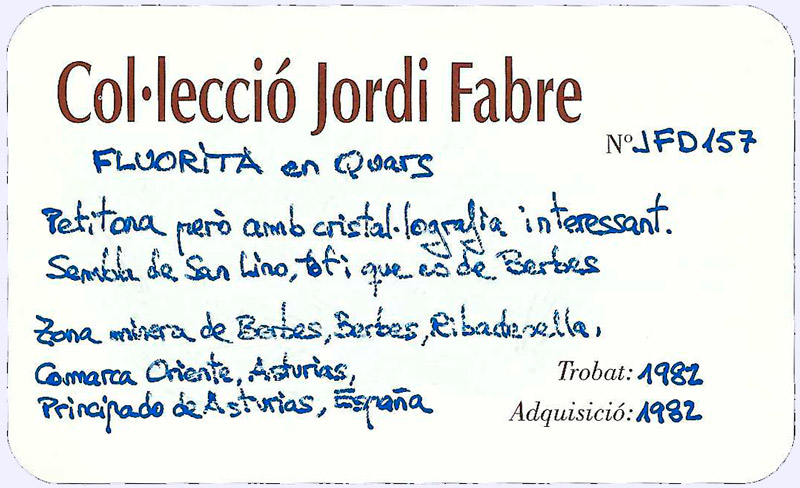 Col·lecció Jordi Fabre
Nº JFD157
FLUORITA en Quars
Petitona però amb cristal·lografia interessant.
Sembla de San Lino, tot i que es de Berbes
Zona minera de Berbes, Berbes, Ribadesella,
Comarca Oriente, Asturias,
Principado de Asturias, España
Trobat: 1982
Adquisició: 1982